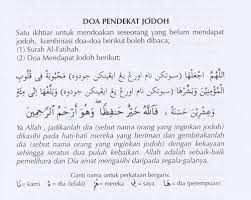 DOA PENDEKAT JODOH
Satu ikhtiar untuk mendoakan seseorang yang belum mendapat
jodoh, kombinasi doa-doa berikut boleh dibaca;
(1) Surah Al-Fatihah
(2) Doa Mendapat Jodoh berikut;
اللَّهُمَّ اجْعَلْهَا (سبوتكن نام اورڠ يڠ ايڠينكن جودوه) مَحْبُوبَةً فِي قُلُوبِ
(سبوتكن نام اورڠ يڠ ايڠينكن جودوه)
وَعِشْرِينَ حَسَنَةً، فَاللَّهُ خَيْرٌ حَافِظًا وَهُوَ أَرْحَمُ الرَّاحِمِينَ
Ya Allah, jadikanlah dia (sebut nama orang yang inginkan jodoh)
dikasihi pada hati-hati mereka yang beriman dan gembirakanlah dia
(sebut nama orang yang inginkan jodoh) dengan kekayaan
sehingga seratus dua puluh kebaikan. Allah adalah sebaik-baik
memelihara dan Dia amat mengasihi daripada segala-galanya.
Ganti nama untuk perkataan berganti;
نَا= kami هُ= dia (lelaki) هُمْ= mereka ي= saya هَا= dia (perempuan)